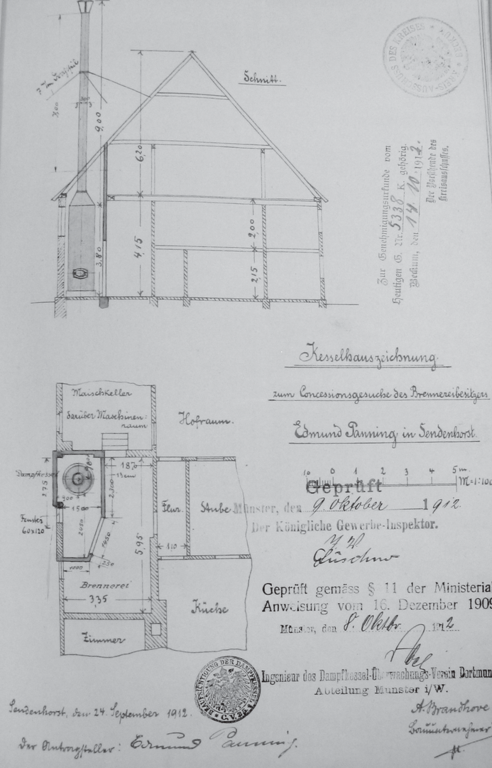 Schnitt.
9,00
6,20
4,15
3,80
2,00
2,15
Zur Genehmigungsurkunde vom
heutigen G. Nr. 5338 K. gehörig.
Beckum, den 14. 10. 1912.
Der Vorsitzende des
Kreisausschusses.
Kesselhauszeichnung
zum Concessionsgesuche des Brennereibesitzers
Edmund Panning in Sendenhorst.
Maischkeller
darüber Maschinen-
raum
Hofraum.
Dampfkessel
Fenster
60x120
Flur
Stube
5,95
Brennerei
3,35
Küche
Zimmer
10 0 1 2 3 4 5 m
M=1:100
Geprüft
Münster, den 9. Oktober 1912
Der Königliche Gewerbe-Inspektor.
Geprüft gemäss § 11 der Ministerial
Anweisung vom 16. Dezember 1909
Münster, den 8. Oktbr. 1912
Ingenieur des Dampfkessel-Überwachungs-Verein Dortmund
Abteilung Münster i/W.
Sendenhorst, den 24. September 1912.
Der Antragsteller: Edmund Panning.
A. Brandhove